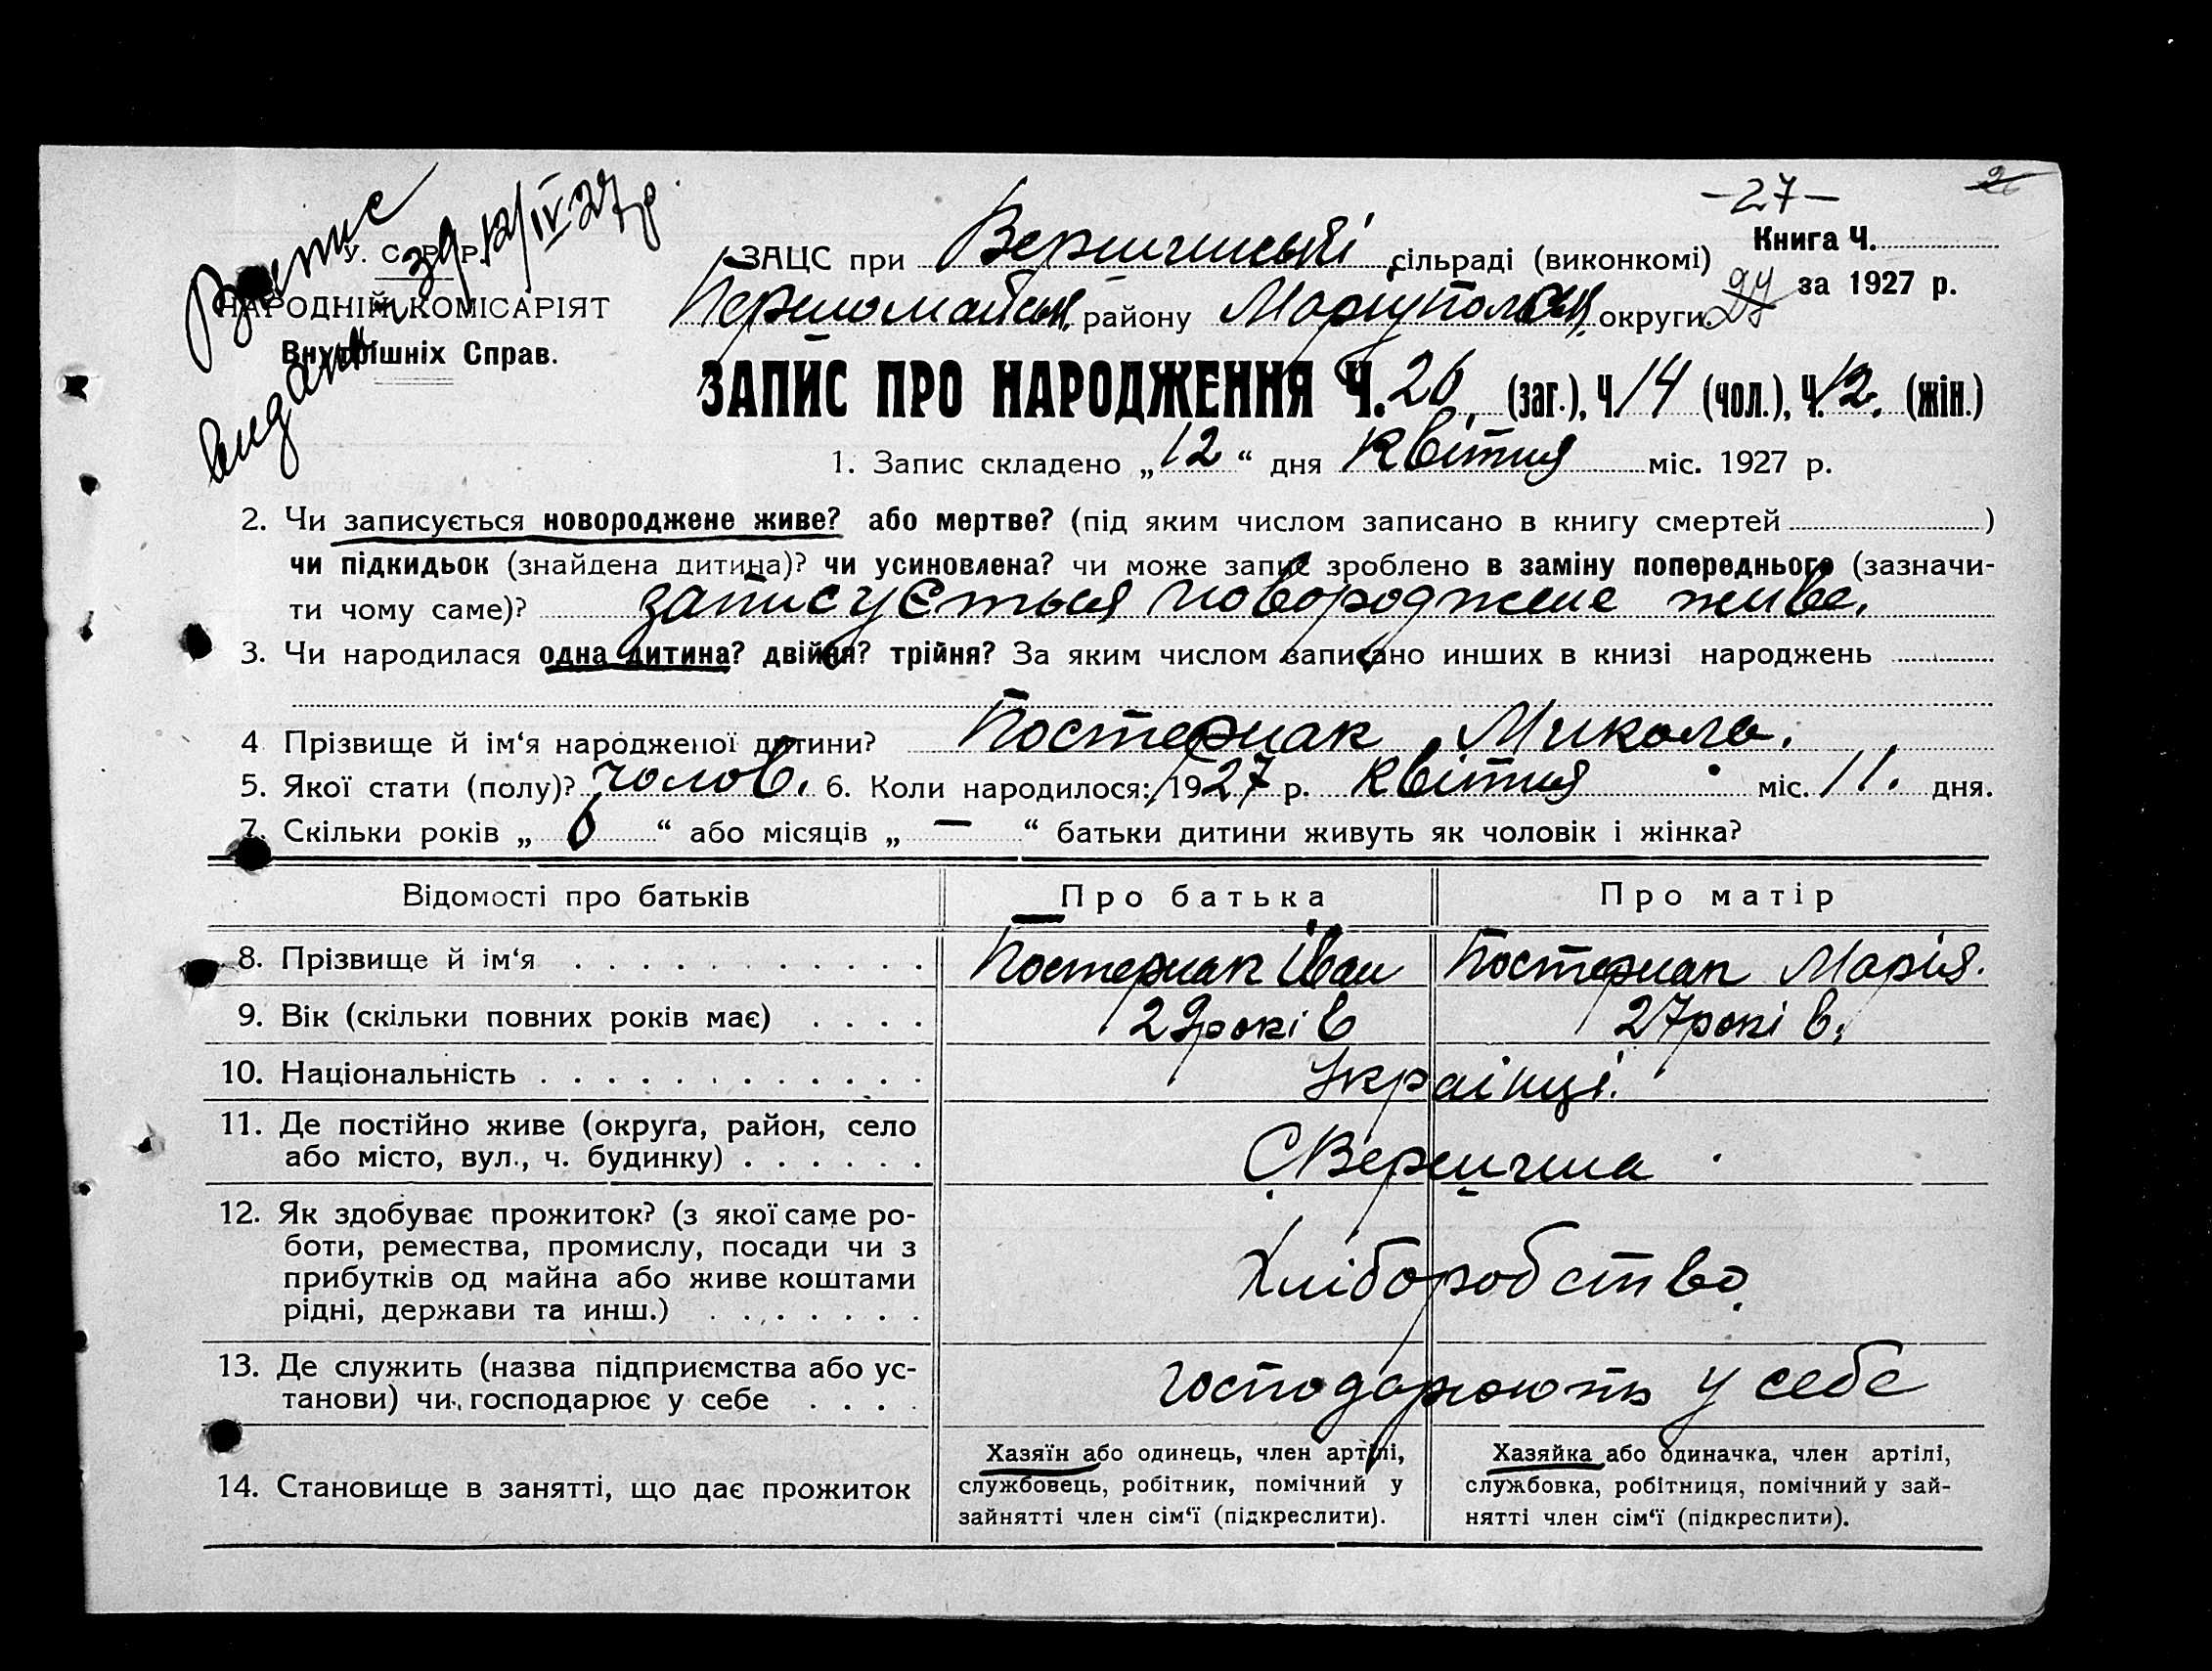 Виписс видани зд 12/IV 27р.
У. С. Р. Р.
НАРОДНІЙ КОМІСАРІЯТ
Внутрішніх Справ.
-27-
2
ЗАЦС при Вершинські сільраді (виконкомі)
Книга Ч.
за 1927 р.
Першомайськ. району Маріупольськ. округи.
ЗАПИС ПРО НАРОДЖЕННЯ Ч. 26. (заг.), Ч. 14 (чол.), Ч. 12. (жін.)
1. Запис складено „ 12 “ дня Квітня міс. 1927 р.
2. Чи записується новороджене живе? або мертве? (під яким числом записано в книгу смертей )
чи підкидьок (знайдена дитина)? чи усиновлена? чи може запис зроблено в заміну попереднього (зазначи-
ти чому саме)? записуЄться новороджене живе.
3. Чи народилася одна дитина? двійня? трійня? За яким числом записано инших в книзі народжень
4 Прізвище й ім‘я народженої дитини? Постернак Микола.
5. Якої стати (полу)? чолов. 6. Коли народилося: 1927 р. Квітня міс. 11. дня.
7. Скільки років „ 6 “ або місяців „ — “ батьки дитини живуть як чоловік і жінка?
Відомості про батьків Про батька Про матір
8. Прізвище й ім‘я Постернак Іван Постернак Марія.
9. Вік (скільки повних років має) 29 років 27 років.
10. Національність Українці.
11. Де постійно живе (округа, район, село
або місто, вул., ч. будинку) С. Вершина
12. Як здобуває прожиток? (з якої саме ро-
боти, ремества, промислу, посади чи з
прибутків од майна або живе коштами
рідні, держави та инш.) Хліборобство.
13. Де служить (назва підприємства або ус-
танови) чи господарює у себе господарюють у себе
14. Становище в занятті, що дає прожиток
Хазяїн або одинець, член артілі,
службовець, робітник, помічний у
зайнятті член сім‘ї (підкреслити).
Хазяйка або одиначка, член артілі,
службовка, робітниця, помічний у зай-
нятті член сім‘ї (підкреслити).